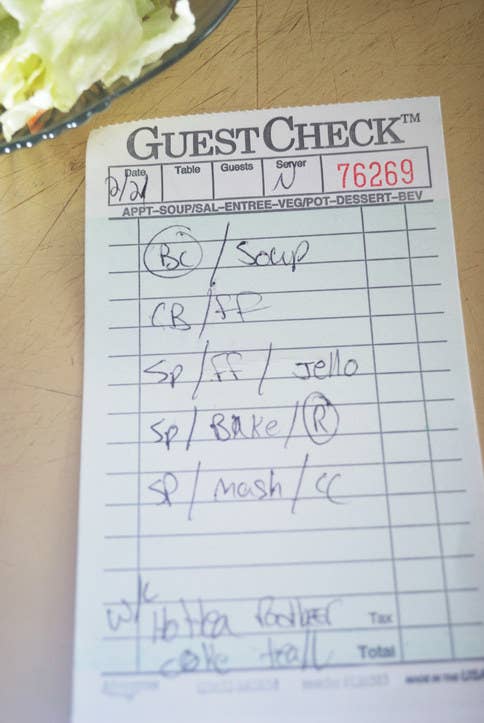 GUEST CHECK™
Date Table Guests Server
2/21 N 76269
APPT–SOUP/SAL–ENTREE–VEG/POT–DESSERT–BEV
BC / Soup
CB / FF
Sp / FF / Jello
Sp / Bake / R
SP / mash / CC
w/c
Hot tea
Tax
coke
Total
MADE IN THE USA